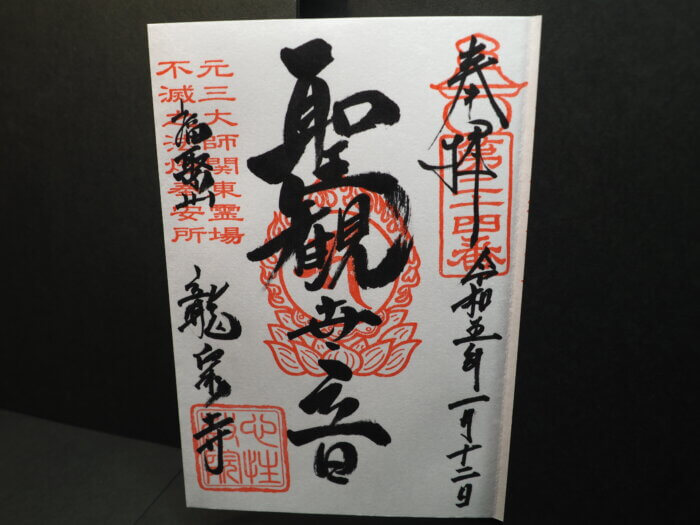 奉拝
令和五年一月十二日
聖観世音
元三大師関東霊場
不滅之法灯奉安所
福聚山
龍泉寺